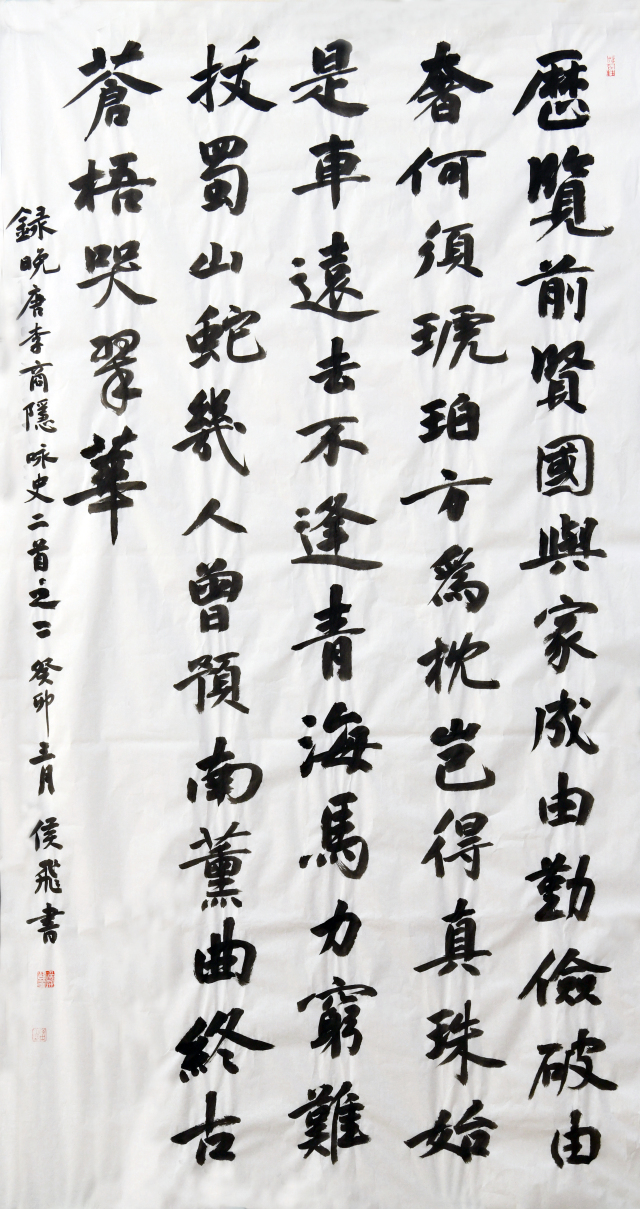 歷覽前賢國與家成由勤儉破由
奢何須琥珀方為枕豈得真珠始
是車遠去不逢青海馬力窮難
拔蜀山蛇幾人曾預南薰曲終古
蒼梧哭翠華
錄晚唐李商隱咏史二首之二癸卯三月侯飛書